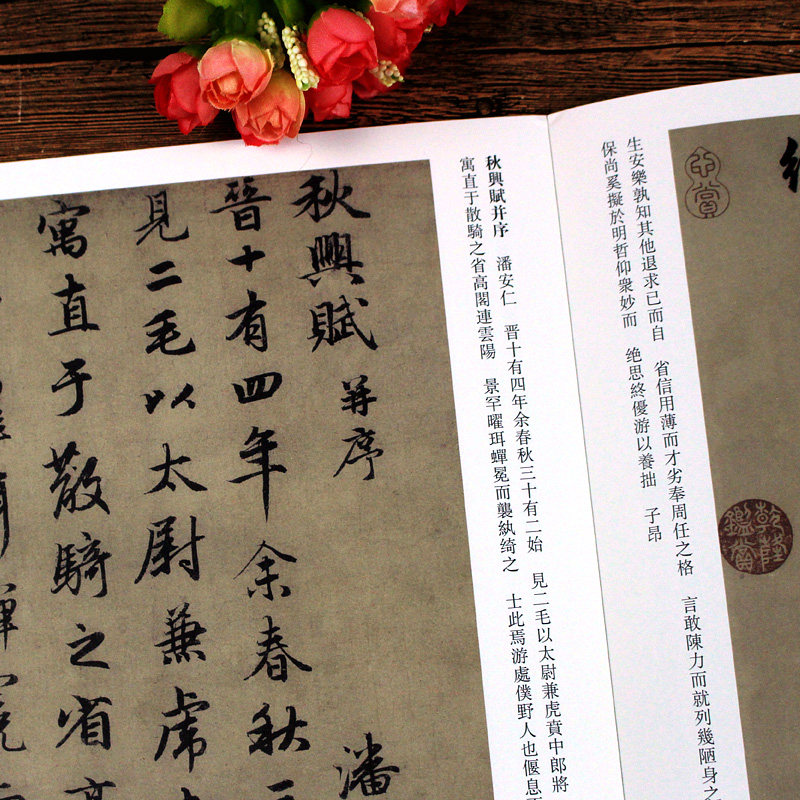 乾隆鑑賞
生安樂孰知其他退求已而自 省信用薄而才劣奉周任之格 言敢陳力而就列幾陋身之
保尚奚擬於明哲仰衆妙而 绝思終優游以養拙 子昂
秋興賦并序 潘安仁 晋十有四年余春秋三十有二始 見二毛以太尉兼虎賁中郎將
寓直于散騎之省高閣連雲陽 景罕曜珥蟬冕而襲紈绮之 士此焉游處僕野人也偃息
秋興賦并序 潘
晉十有四年余春秋三
見二毛以太尉兼虎
寓直于散騎之省高